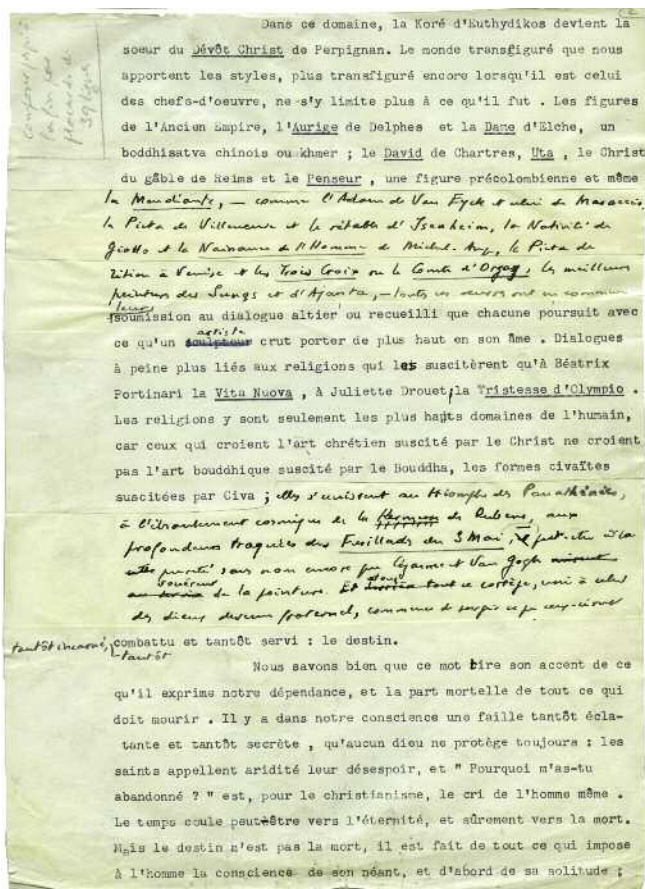 Dans ce domaine, la Koré d'Euthydikos devient la
soeur du Dévôt Christ de Perpignan. Le monde transfiguré que nous
apportent les styles, plus transfiguré encore lorsqu'il est celui
des chefs-d'oeuvre, ne s'y limite plus à ce qu'il fut . Les figures
de l'Ancien Empire, l'Aurige de Delphes et la Dame d'Elche, un
boddhisatva chinois ou khmer ; le David de Chartres, Uta , le Christ
du gâble de Reims et le Penseur , une figure précolombienne et même
la Mendiante, – comme l'Adam de Van Eyck et celui de Masaccio,
la Pieta de Villeneuve et le rétable d'Issenheim, la Nativité de
Giotto et la Naissance de l'Homme de Michel-Ange, la Pieta de
Titien à Venise et les Trois Croix ou le Comte d'Orgaz, les meilleures
peintures des Sungs et d'Ajanta, – toutes ces oeuvres ont en commun
leur
soumission au dialogue altier ou recueilli que chacune poursuit avec
artiste
ce qu'un sculpteur crut porter de plus haut en son âme . Dialogues
à peine plus liés aux religions qui les suscitèrent qu'à Béatrix
Portinari la Vita Nuova , à Juliette Drouet, la Tristesse d'Olympio .
Les religions y sont seulement les plus hauts domaines de l'humain,
car ceux qui croient l'art chrétien suscité par le Christ ne croient
pas l'art bouddhique suscité par le Bouddha, les formes civaïtes
suscitées par Civa ; elles s'unissent au triomphe des Panathénées,
à l'ébranlement cosmique de la Kermesse de Rubens, aux
profondeurs traquées des Fusillades du 3 Mai,
pureté sans nom encore que Cézanne et Van Gogh
de la peinture. Et tout ce cortège, uni à celui
des dieux devenu fraternel, commence de
tantôt incarné, combattu et tantôt servi : le destin.
tantôt
Nous savons bien que ce mot tire son accent de ce
qu'il exprime notre dépendance, et la part mortelle de tout ce qui
doit mourir . Il y a dans notre conscience une faille tantôt écla-
tante et tantôt secrète , qu'aucun dieu ne protège toujours : les
saints appellent aridité leur désespoir, et " Pourquoi m'as-tu
abandonné ? " est, pour le christianisme, le cri de l'homme même .
Le temps coule peut-être vers l'éternité, et sûrement vers la mort.
Mais le destin n'est pas la mort, il est fait de tout ce qui impose
à l'homme la conscience de son néant, et d'abord de sa solitude ;